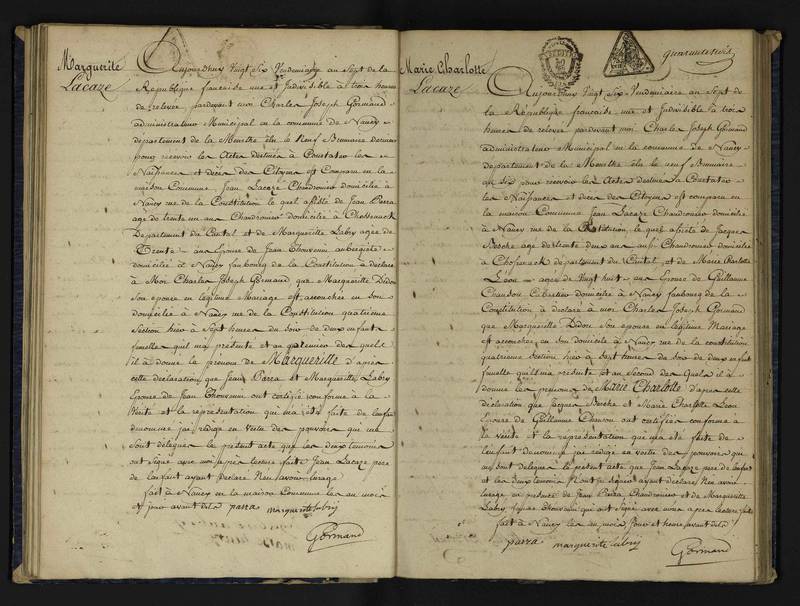 Marguerite
Lacaze
Aujourdhuy Vingt Six Vendemiaire an Sept de la
République francaise une et Indivisible à trois heures
de relevée pardevant moi Charles Joseph Germand
administrateur Municipal en la commune de Nancy
département de la Meurthe élu le Neuf Brumaire dernier
pour recevoir les Actes destinés à Constater les
Naissances et décès des Citoyens est Comparu en la
maison Commune Jean Lacaze Chaudronnier domicilié à
Nancy rue de la Constitution le quel assisté de Jean Parra
age de trente un ans Chaudronnier domicilié à
Département du Cantal et de Marguerille Labry agée de
Trente ans Epouse de Jean Thouvenin aubergiste
domiciliée à Nancy faubourg de la Constitution à déclaré
à Moi Charles Joseph Germand que Marguerille Didon
Son epouse en légitime Mariage est accouchée en son
domicile à Nancy rue de la Constitution quatrieme
Section hier à Sept heures du Soir de deux enfant
femelles qu'il m'a présenté et au premier des quels
il à donné le prénom de Marguerille d'après
cette déclaration que Jean Parra et Marguerille Labry
Epouse de Jean Thouvenin ont certifié conforme à la
Vérité et la représentation qui m'a été faite de l'enfant
dénommé j'ai rédigé en vertu des pouvoirs qui me
sont délégués le présent acte que les deux temoins
ont Signé avec moi après lecture faite Jean Lacaze pere
de l'enfant ayant Déclaré N'en avoir l'usage
fait à Nancy en la maison Commune les an mois
et jour avant dits
parra marguerite labriy
Germand
quarante six
Marie Charlotte
Lacaze
Aujourdhuy Vingt Six Vendemiaire an Sept de
la République francaise une et Indivisible à trois
heures de relevée pardevant moi Charles Joseph Germand
administrateur Municipal en la commune de Nancy
departement de la Meurthe élu le neuf Brumaire
an Six pour recevoir les Actes destinés à Constater
les Naissances et deces des Citoyens est comparu en
la maison Commune Jean Lacaze Chaudronnier domicilié
à Nancy rue de la Constitution, le quel assisté de Jacques
age de trente deux ans aussi Chaudronnier domicilié
à departement du Cantal et de Marie Charlotte
Leon agée de Vingt huit ans Epouse de Guillaume
Cabartier domiciliée à Nancy faubourg de la
Constitution à declaré à moi Charles Joseph Germand
que Marguerille Didon son epouse en légitime Mariage
est accouchée en son domicile à Nancy rue de la constitution
quatrieme section hier à Sept heures du Soir de deux enfant
femelle qu'il m'a présenté et au Second des Quels il à
donné les prénoms de Marie Charlotte d'après cette
déclaration que Jacques et Marie Charlotte Leon
Epouse de Guillaume ont certifiés conforme à
la vérité et la représentation qui m'a été faite de
l'enfant dénommé j'ai rédigé en vertu des pouvoirs qui
me sont délégués le présent acte que Jean Lacaze pere de l'enfant
et les deux temoins N'ont pu Signer ayant déclaré N'en avoir
l'usage en présence de Jean Parra, Chaudronnier et de Marguerille
Labry, epouse Thouvenin qui ont Signé avec nous après lecture faite
fait à Nancy les an, mois, Jour et heure avant dits
parra marguerite labriy
Germand